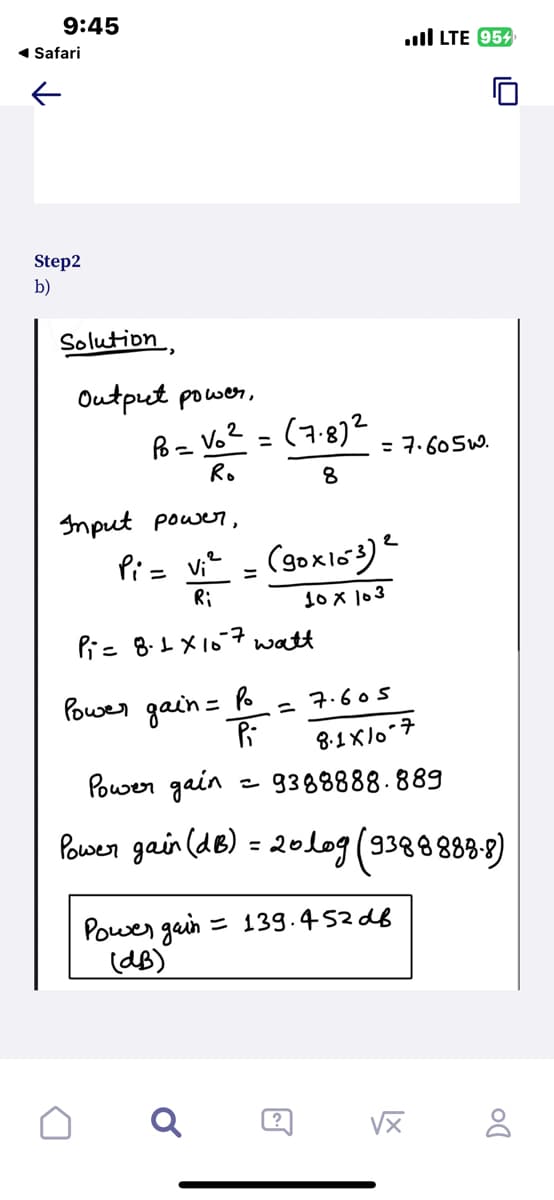 9:45
LTE 95
◂ Safari
Step2
b)
Solution,
Output power,
Po = Vo² / Ro = (7.8)² / 8 = 7.605W.
Input power,
Pi = Vi² / Ri = (90x10⁻³)² / 10 x 10³
Pi = 8.1 x 10⁻⁷ watt
Power gain = Po / Pi = 7.605 / 8.1x10⁻⁷
Power gain = 9388888.889
Power gain (dB) = 20log (9388888.8)
Power gain = 139.452 dB
(dB)
?
√x